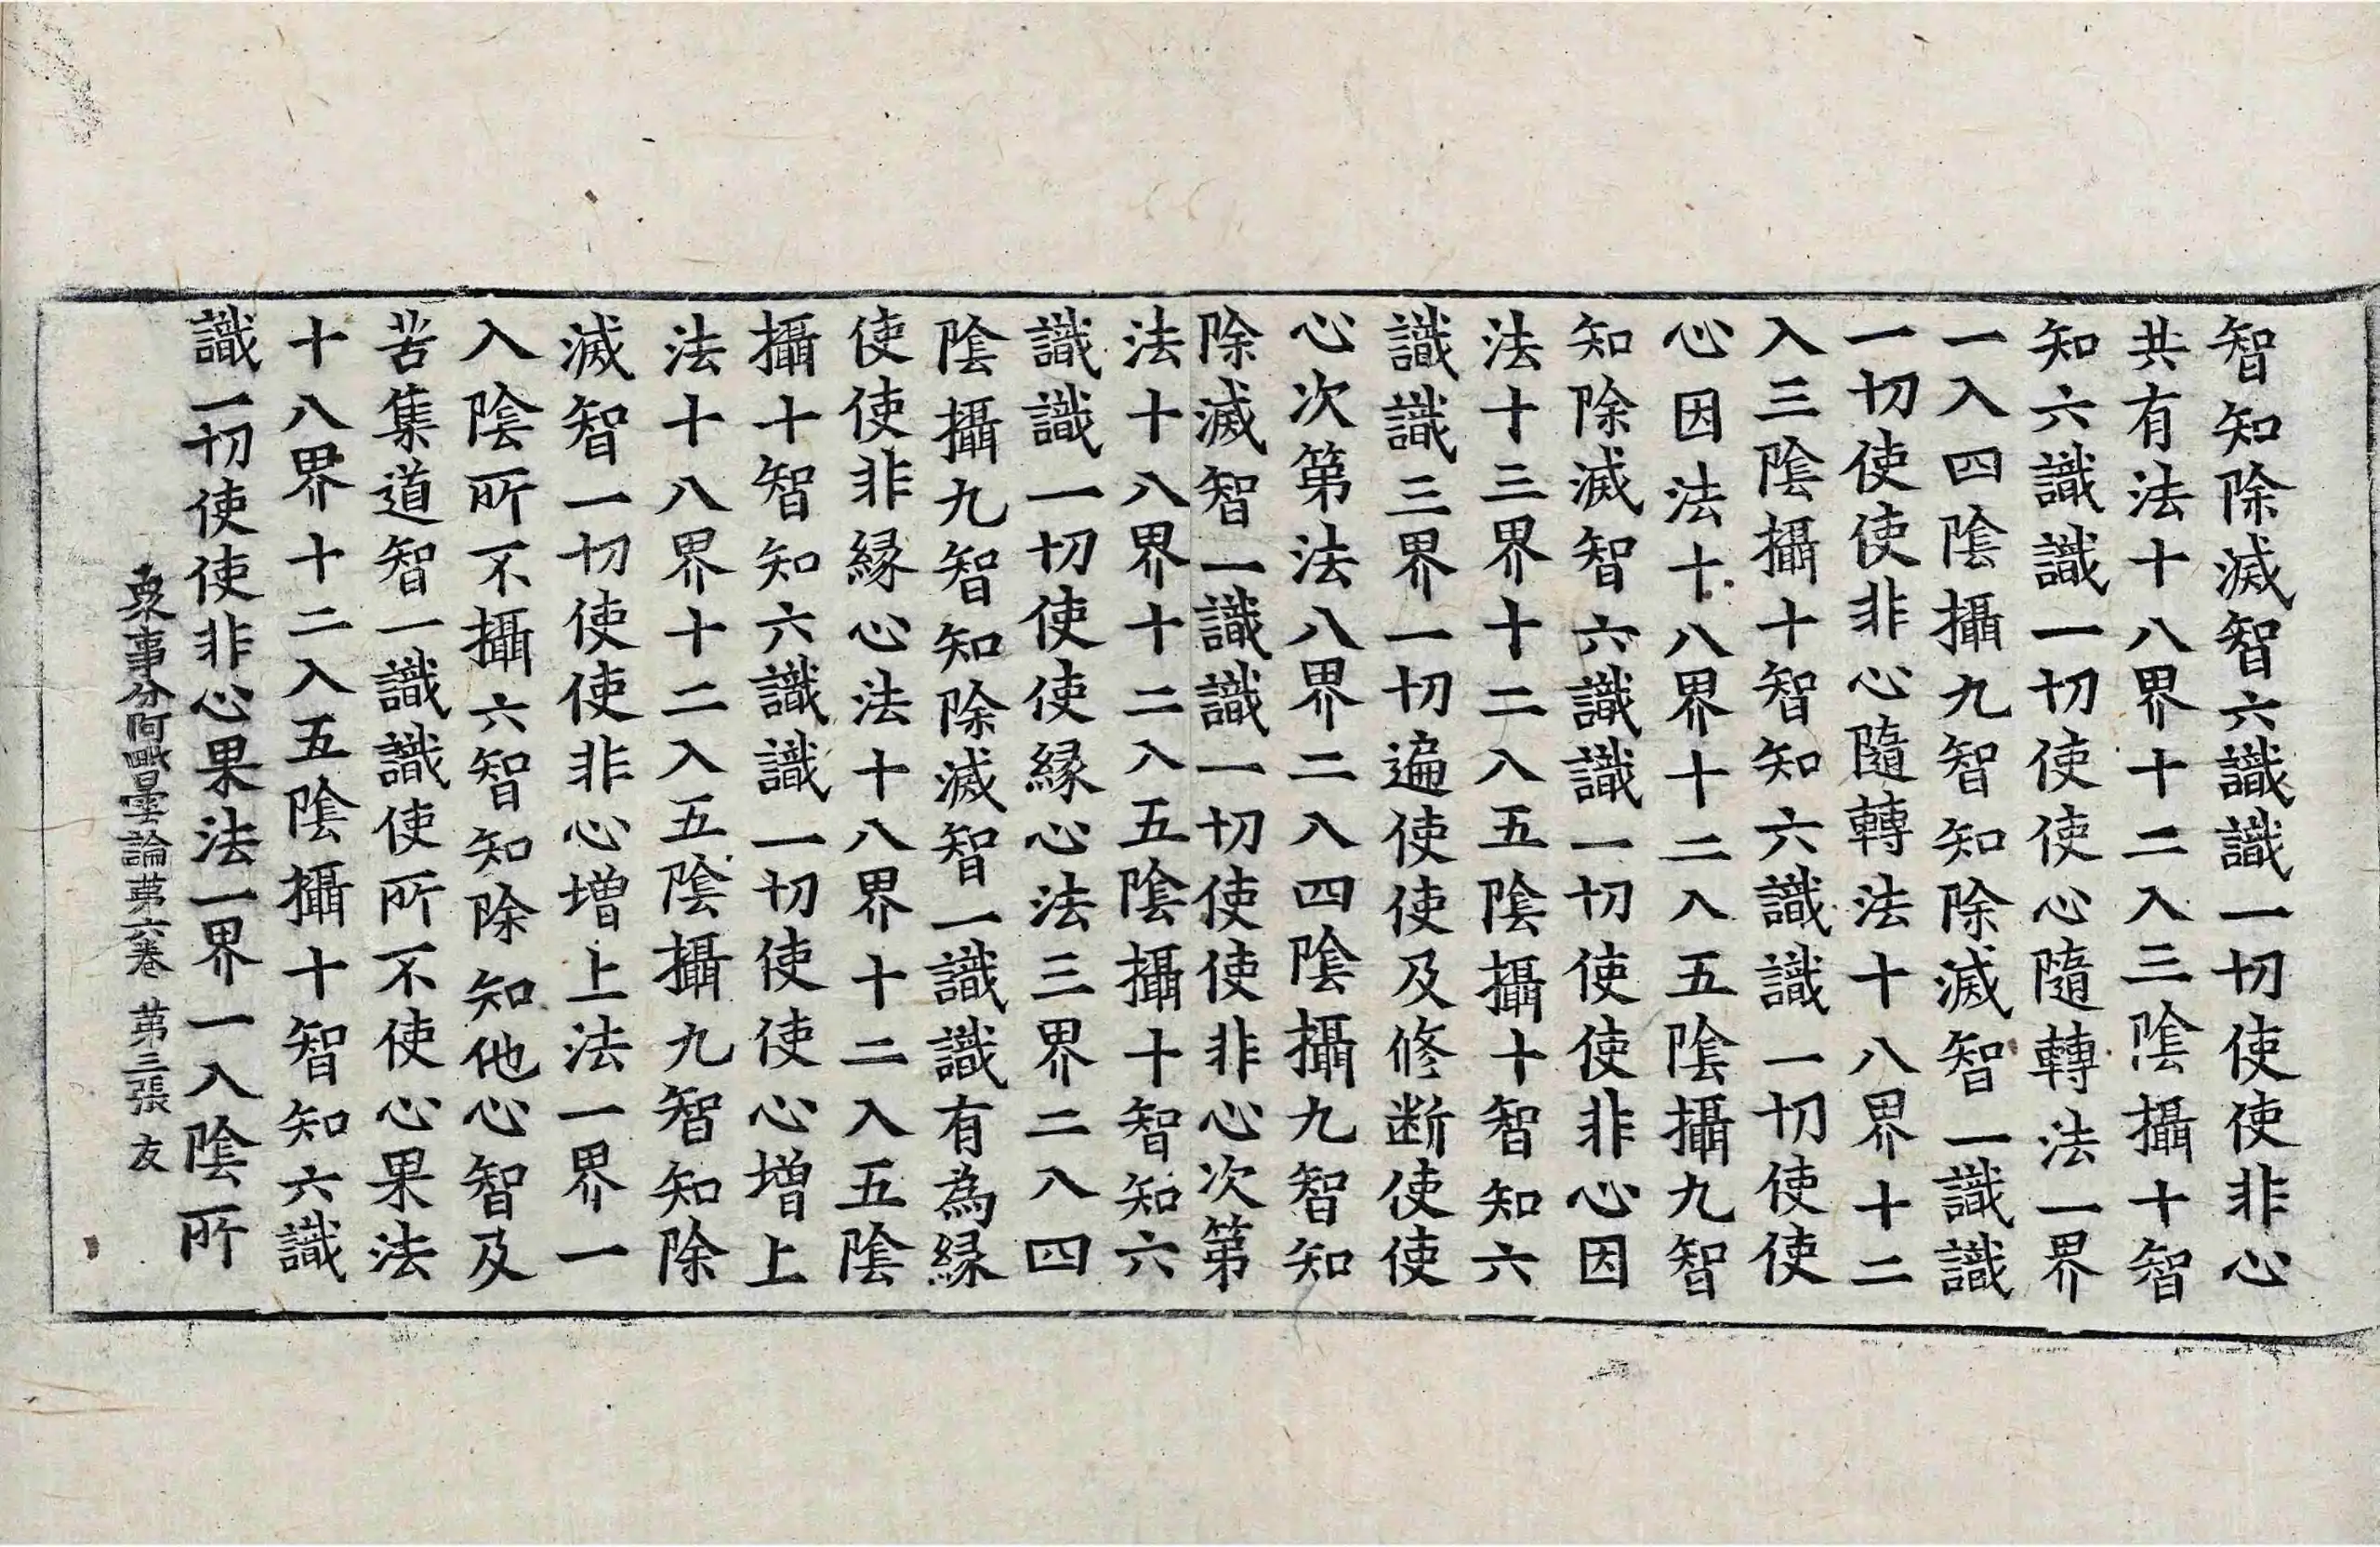 智知除滅智六識識一切使使非心
共有法十八界十二入三陰攝十智
知六識識一切使使心隨轉法一界
一入四陰攝九智知除滅智一識識
一切使使非心隨轉法十八界十二
入三陰攝十智知六識識一切使使
心因法十八界十二入五陰攝九智
知除滅智六識識一切使使非心因
法十三界十二入五陰攝十智知六
識識三界一切遍使使及修断使使
心次第法八界二入四陰攝九智知
除滅智一識識一切使使非心次第
法十八界十二入五陰攝十智知六
識識一切使使縁心法三界二入四
陰攝九智知除滅智一識識有為縁
使使非縁心法十八界十二入五陰
攝十智知六識識一切使使心增上
法十八界十二入五陰攝九智知除
滅智一切使使非心增上法一界一
入陰所不攝六智知除知他心智及
苦集道智一識識使所不使心果法
十八界十二入五陰攝十智知六識
識一切使使非心果法一界一入陰所
衆事分阿毗曇論苐六卷 苐三張 友